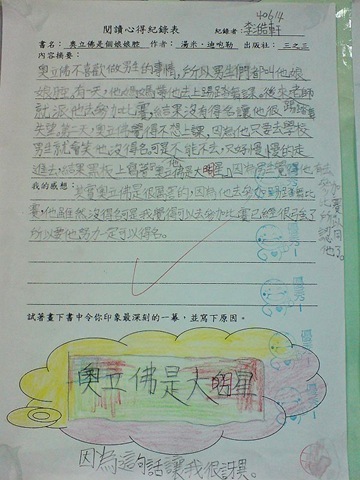 40614
閱讀心得紀錄表 紀錄者：李皓軒
書名：奧立佛是個娘娘腔 作者：湯米．迪咆勒 出版社：三之三
內容摘要：
奧立佛不喜歡做男生的事情，所以男生們都叫他娘
娘腔，有一天，他媽媽帶他去上踢踏舞課。後來老師
就派他去參加比賽，結果沒有得名讓他很
失望。第二天，奧立佛覺得不想上課，因為他只要去學校
男生就會笑他沒得名可是不能不去，只好慢慢的走
進去，結果黑板上寫著「奧立佛是大明星」因為男生覺得他有去
參加比賽所以認同他了。
我的感想：其實奧立佛是很厲害的，因為他去參加踢踏舞比
賽，他雖然沒得名可是我覺得可以去參加比賽已經很好了
所以要他努力一定可以得名。
優秀
優秀
優秀
優秀
試著畫下書中令你印象最深刻的一幕，並寫下原因。
奧立佛是大明星
因為這句話讓我很訝異。